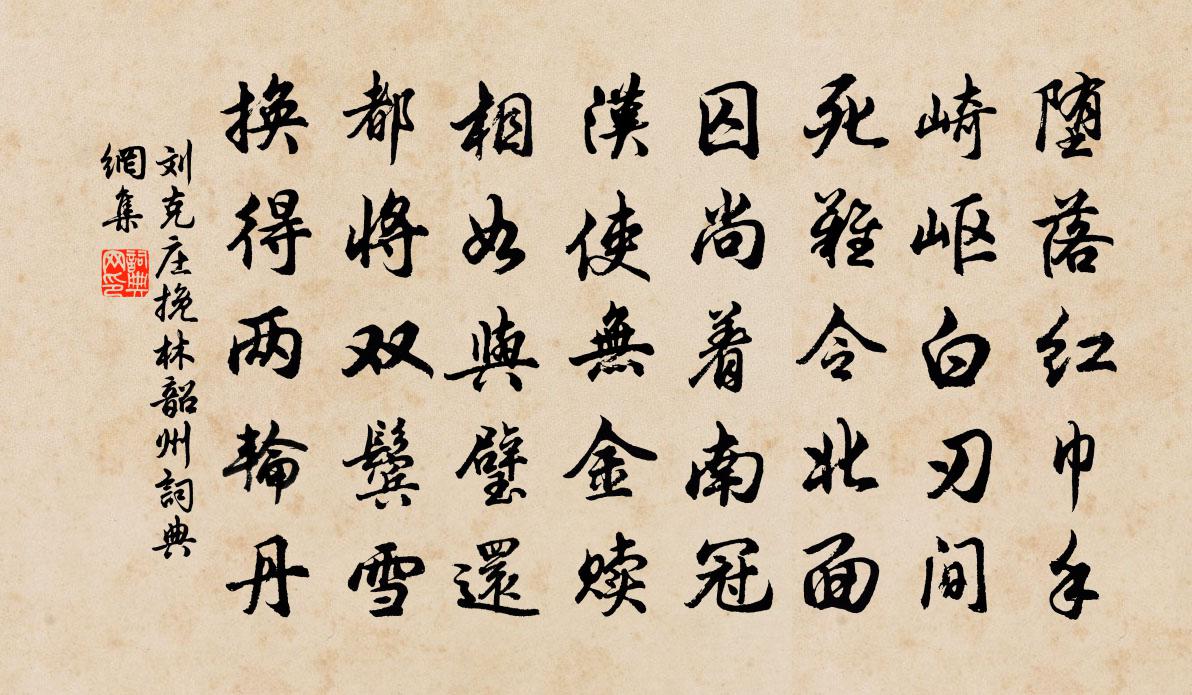 堕落红巾手
崎岖白刃间
死难令北面
囚尚着南冠
漢使無金赎
相如與璧還
都将双鬓雪
换得两輪丹
刘克庄挽林韶州詞典
網集
詞典网印